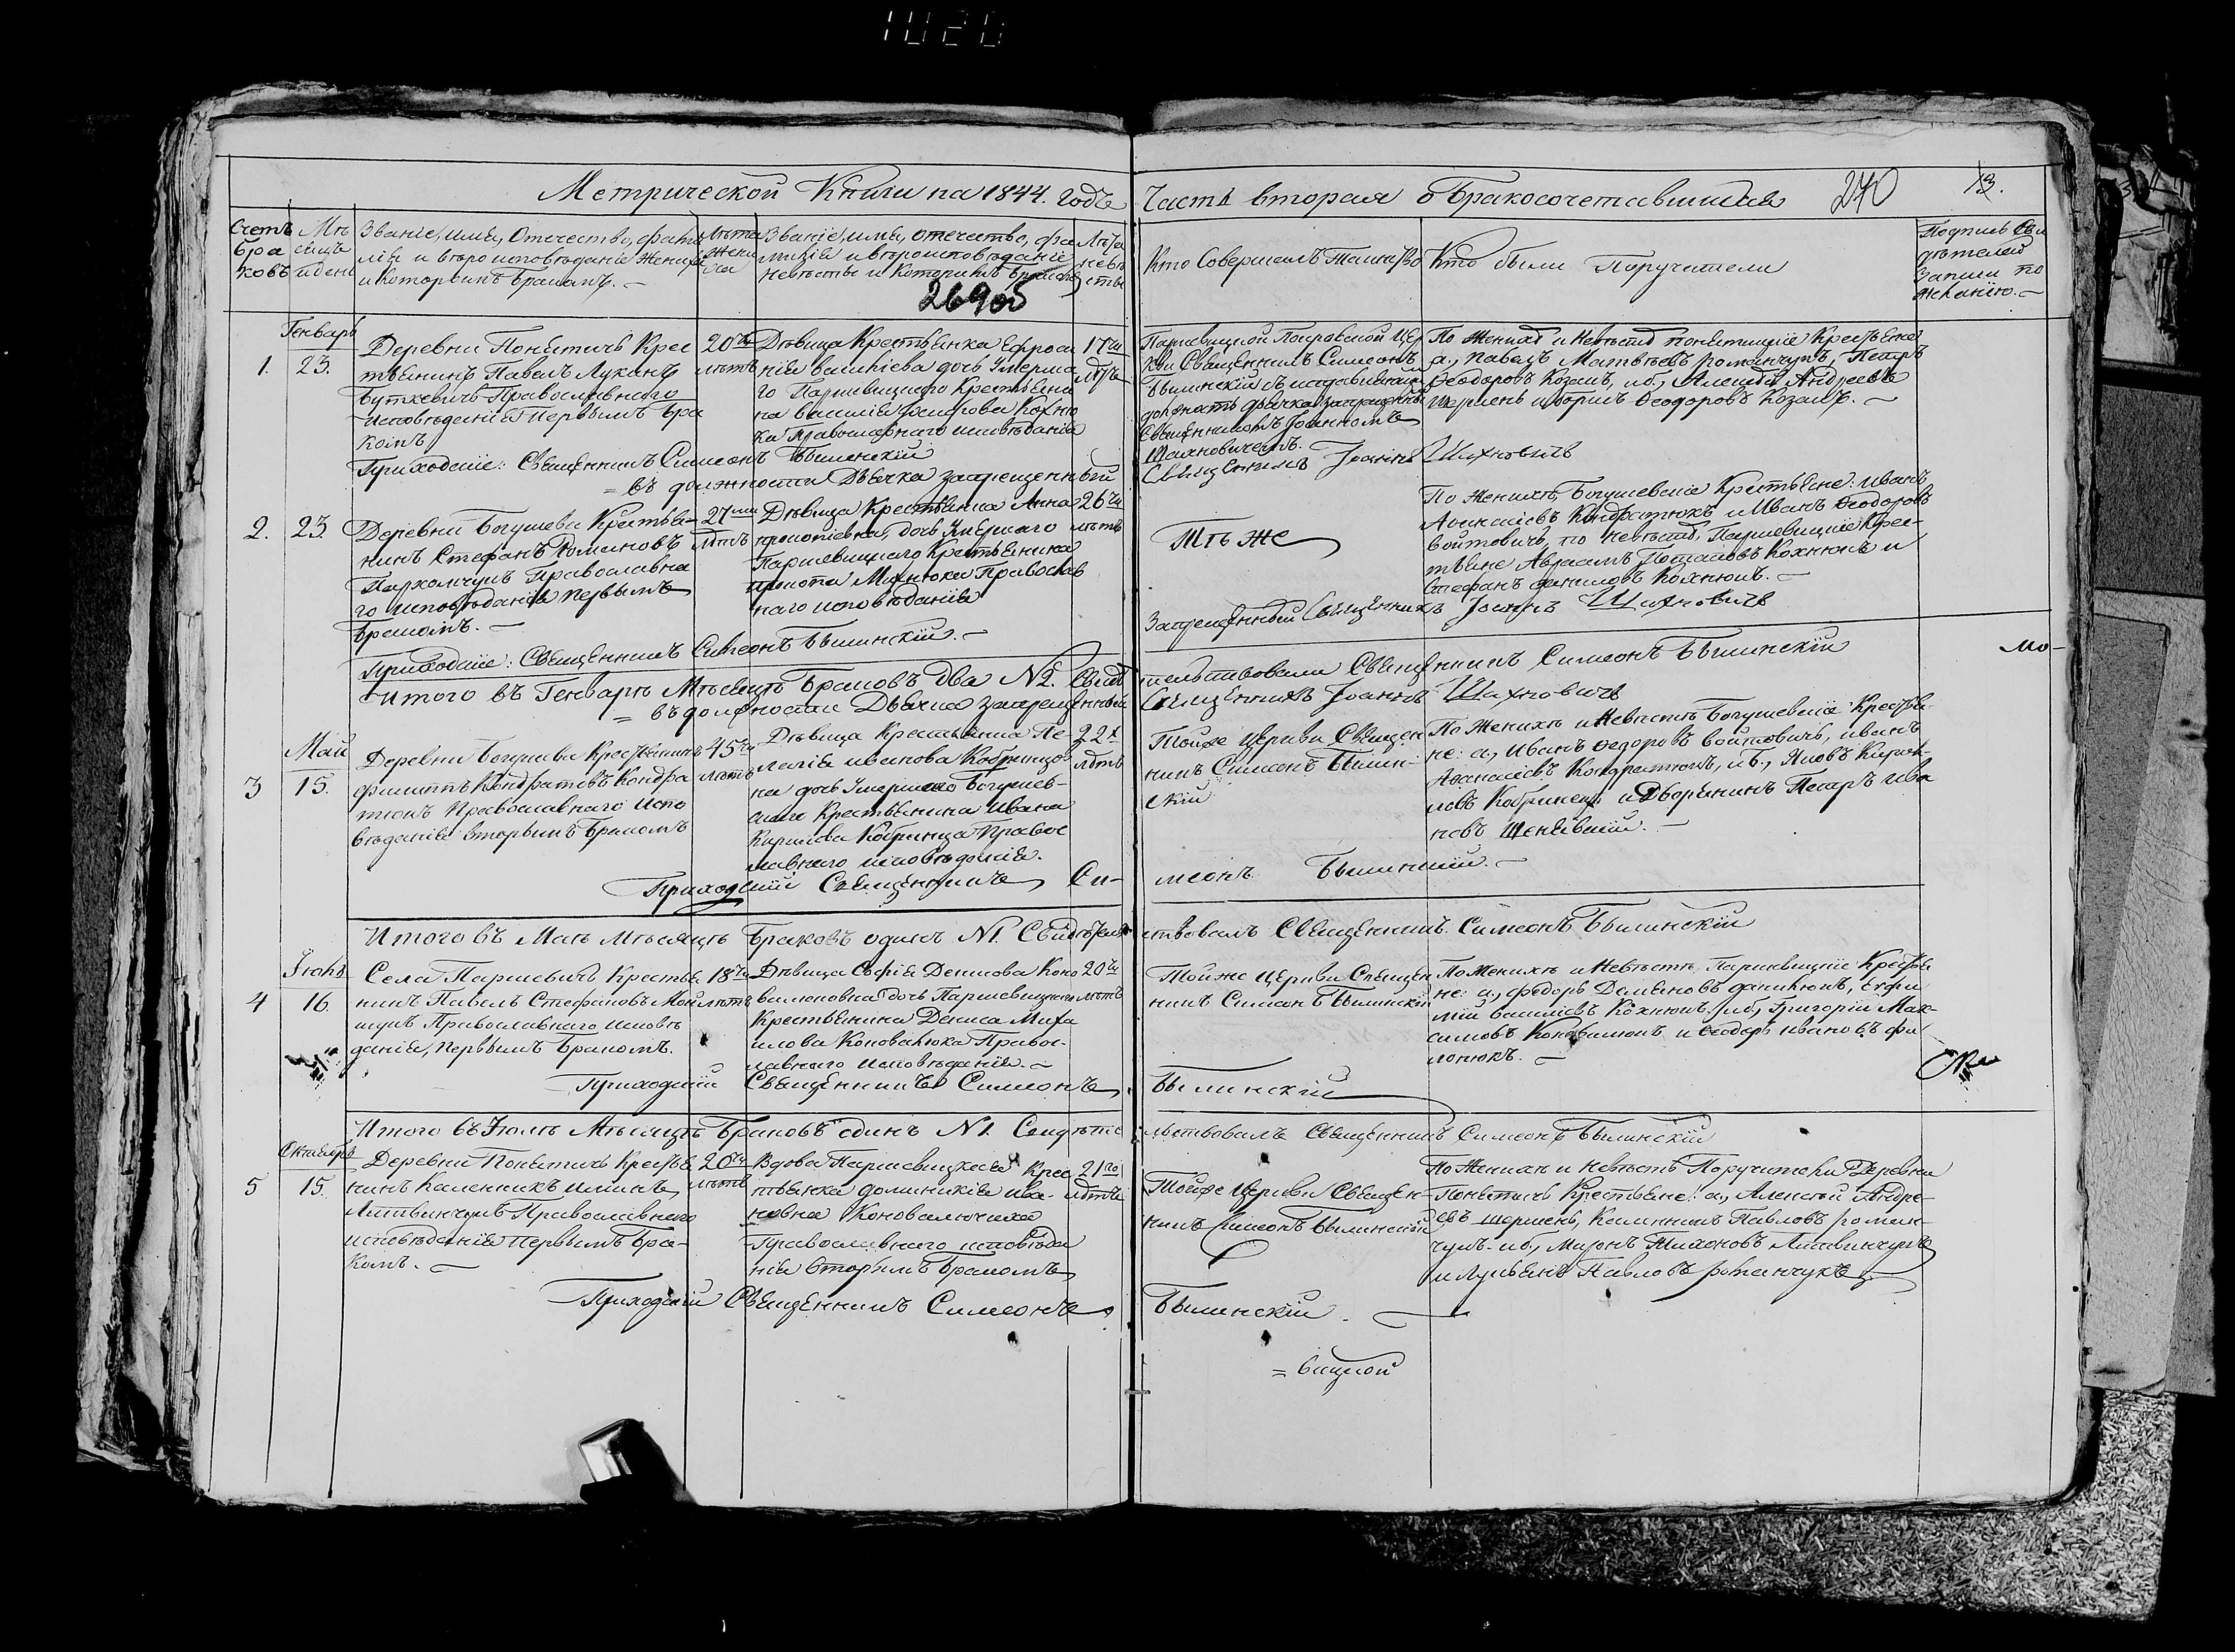 1020
Метрической Книги на 1844. годъ Часть вторая о Бракосочетавшихся 240 13.
Счетъ
бра
ковъ
Мѣ
сяцъ
и день
Званіе, имя, Отечество, фами
лія и вѣроисповѣданіе Жениха
и которымъ Бракомъ. —
Лѣта
Жени
ха
Званіе, имя, отечество, фа
милія и вѣроисповѣданіе
невѣсты и которымъ бракомъ
26905
Лѣта
невѣ
сты
Кто Совершалъ Таинство
Кто были Поручители
Подпись Сви
дѣтелей
Записи по
желанію. —
Генварь
1.
23.
Деревни Понятичъ Крес
тьянинъ Павелъ Лукинъ
Буткевичъ Православнаго
исповѣданія Первымъ Бра
комъ
20ти
лѣтъ
Дѣвица Крестьянка Ефроси
нія васильева дочь Умерша
го Паршевицкаго Крестьяни
на василія Кохню
ка Православнаго исповѣданія
17ти
лѣтъ
Паршевицкой Покровской Цер
кви Священникъ Симеонъ
Былинскій съ исправляющимъ
должность дьячка запрещеннымъ
Священникомъ Іоанномъ
Шахновичемъ. —
По Женихѣ и Невѣстѣ понятицкіе Крестьяне
а., павелъ Матвѣевъ романчукъ, Петръ
Ѳеодоровъ Козакъ, и б., Алексѣй Андреевъ
шершень и борисъ Ѳеодоровъ Козакъ. —
Приходскіе: Священникъ Симеонъ Былинскій
= въ должности Дьячка запрещенный
Священникъ Іоаннъ Шахновичъ
2.
23.
Деревни Богушева Крестья-
нинъ Стефанъ Романовъ
Пархомчукъ Православна
го исповѣданія первымъ
Бракомъ. —
27ми
лѣтъ
Дѣвица Крестьянка Анна
прокопіевна, дочь Умершаго
Паршевицкаго Крестьянина
прокопа Михнюка Православ
наго исповѣданія
26ти
лѣтъ
Тѣ же
По Женихѣ, Богушевскіе Крестьяне: иванъ
Аѳанасіевъ Кондратюкъ и Иванъ Ѳеодоровъ
войтовичъ, по Невѣстѣ, Паршевицкіе Крес-
тьяне Авраамъ Потаповъ Кохнюкъ и
Стефанъ даниловъ Кохнюкъ. —
Приходскіе: Священникъ Симеонъ Былинскій. —
Запрещенный Священникъ Іоаннъ Шахновичъ
Итого въ Генварѣ Мѣсяцѣ Браковъ два №2. Свидѣ
тельствовали Священникъ Симеонъ Былинскій
= въ должности Дьячка запрещенный
Священникъ Іоаннъ Шахновичъ
мо-
Май
3
15.
Деревни Богушева Крестьянинъ
филиппъ Кондратовъ Кондра
тюкъ Православнаго Испо
вѣданія вторымъ Бракомъ
45ти
лѣтъ
Дѣвица Крестьянка Пе-
лагія иванова Кобринцов
на дочь Умершаго Богушев-
скаго Крестьянина Ивана
Кирилова Кобринца Правос
лавнаго исповѣданія.
22х
лѣтъ
Тойже Церкви Священ
никъ Симеонъ Былин-
скій
По Женихѣ и Невѣстѣ Богушевскіе Крестья-
не: а., Иванъ Ѳедоровъ войтовичъ, иванъ
Аѳанасіевъ Кондратюкъ, и б., Яковъ Кири-
ловъ Кобринецъ и Дворянинъ Петръ ива
новъ
Приходскій Священникъ Си-
меонъ Былинскій. —
Итого въ Маѣ мѣсяцѣ Браковъ одинъ №1. Свидѣтель
ствовалъ Священникъ Симеонъ Былинскій
Іюль
4
16.
Села Паршевичъ Крестья
нинъ Павелъ Стефановъ
Православнаго исповѣ
данія, первымъ Бракомъ.
18ти
лѣтъ
Дѣвица Софія Денисова Коно
валюковна дочь Паршевицкаго
Крестьянина Дениса Миха
илова Коновалюка Правос-
лавнаго исповѣданія. —
20ти
лѣтъ
Тойже Церкви Священ
никъ Симеонъ Былинскій
По Женихѣ и Невѣстѣ, Паршевицкіе Крестья
не: а., Ѳедоръ Демяновъ данилюкъ, Ехри
мій василіевъ Кохнюкъ, и б., Григорій Мак-
симовъ Коновалюкъ и Ѳеодоръ ивановъ фи
лонюкъ. —
Приходскій Священникъ Симеонъ
Былинскій
Итого въ Іюлѣ Мѣсяцѣ Браковъ одинъ №1. Свидѣте
льствовалъ Священникъ Симеонъ Былинскій
Октябрь
5
15.
Деревни Понятичъ Крестья
нинъ Каленникъ
Литвинчукъ Православнаго
исповѣданія первымъ Бра-
комъ. —
20ти
лѣтъ
Вдова Паршевицкая Крес
тьянка доминикія ива-
новна Коновалючиха
Православнаго исповѣда
нія вторымъ Бракомъ
21го
лѣтъ
Тойже Церкви Священ-
никъ Симеонъ Былинскій
По Женихѣ и Невѣстѣ Поручители Деревни
Понятичъ Крестьяне: а., Алексѣй Андре-
евъ шершень, Каленникъ Павловъ роман-
чукъ и б., Миронъ Тихоновъ Литвинчукъ
и Лукьянъ Павловъ романчукъ
Приходскій Священникъ Симеонъ
Былинскій. —